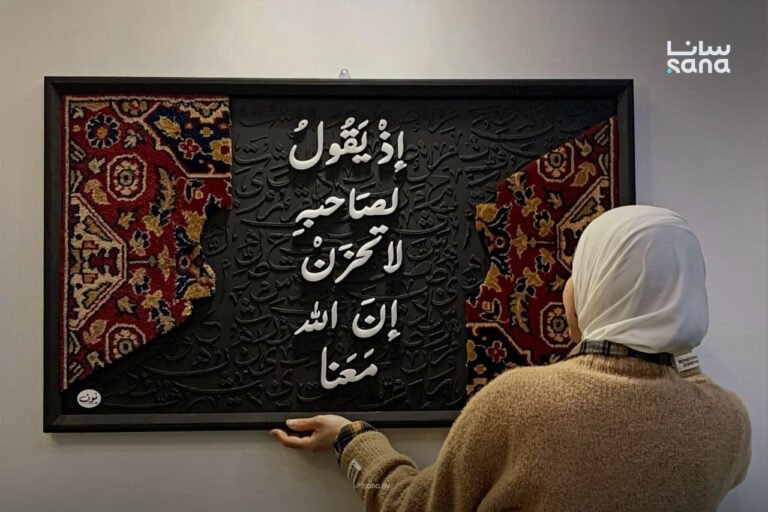 سانا
sana
إِذْ يَقُولُ
لصَاحبهِ
لا تحزَنْ
إنَ الله
مَعَنا
نون